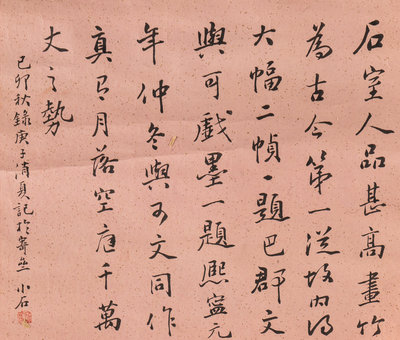 石室人品甚高畫竹
為古今第一從坡內得
大幅二幀一題巴郡文
與可戲墨一題熙寧元
年仲冬與可文同作
真有月落空庭千萬
丈之勢
己卯秋錄庚子消夏記於齋 小石